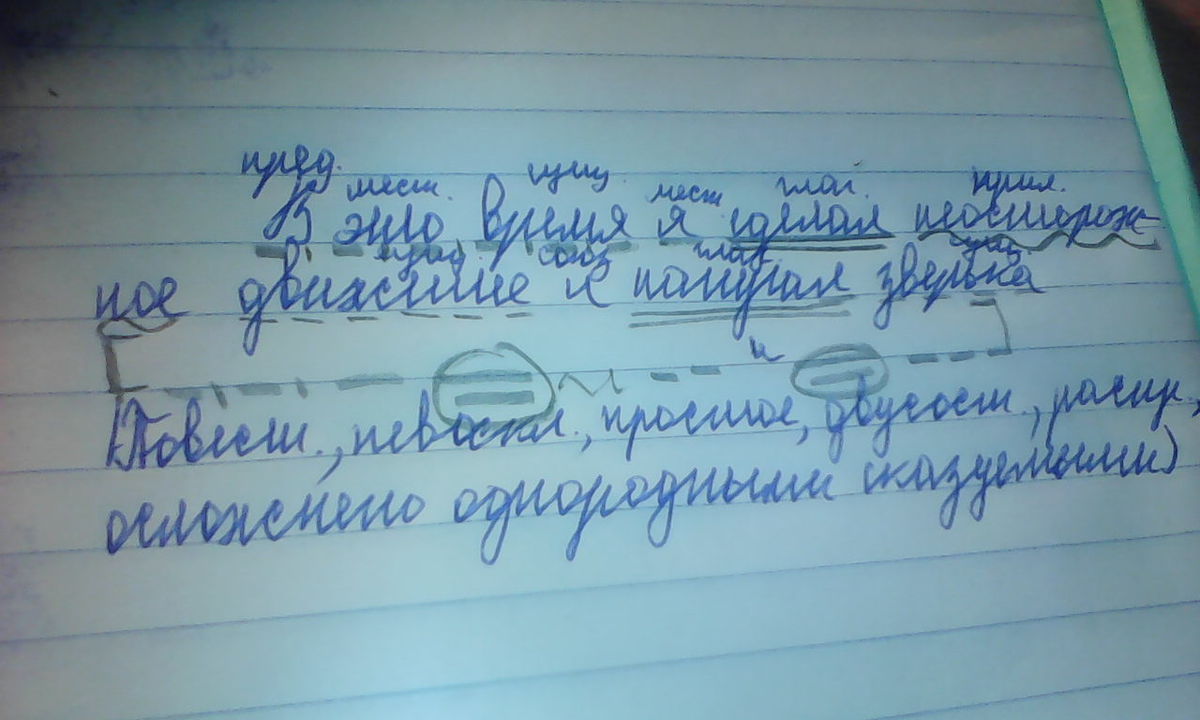 пред. мест. сущ. мест глаг. прил.
В это время я сделал неосторож-
сущ. союз глаг. сущ.
ное движение и напугал зверька
и
(Повеств., невоскл., простое, двусост., распр.,
осложнено однородными сказуемыми)